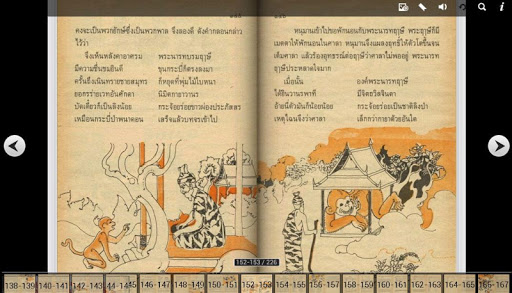 คงจะเป็นพวกยักษ์ซึ่งเป็นพวกพาล จึงลองดี ดังคำกลอนกล่าว
ไว้ว่า
จึงเห็นหลังคาอาศรม พระนารทบรมฤๅษี
มีความชื่นชมยินดี ขุนกระบี่ก็ตรงลงมา
ครั้นถึงเนินทรายชายสมุทร ก็หยุดที่พุ่มไม้ใบหนา
ยอกรรายเวทอันศักดา นิมิตกายาวานร
บัดเดี๋ยวก็เป็นลิงน้อย กระจ้อยร่อยขาวผ่องประภัสสร
เหมือนกระบี่ป่าพนาดอน เสร็จแล้วบทจรเข้าไป
หนุมานเข้าไปขอพักนอนกับพระนารทฤๅษี พระฤๅษีก็มี
เมตตาให้พักนอนในศาลา หนุมานจึงแผลงฤทธิ์ให้ตัวโตขึ้นจน
เต็มศาลา แล้วร้องอุทธรณ์ต่อฤๅษีว่าศาลาไม่พออยู่ พระนารท
ฤๅษีประหลาดใจมาก
เมื่อนั้น องค์พระนารทฤๅษี
ได้ยินวานรพาที มีจิตฤษีจินดา
อ้ายนี่ตัวมันก็น้อยน้อย กระจ้อยร่อยเป็นชาติลิงป่า
เหตุไฉนจึงว่าศาลา เล็กกว่ากายาด้วยอันใด
152-153 / 226
138-139 140-141 142-143 144-145 146-147 148-149 150-151 152-153 154-155 156-157 158-159 160-161 162-163 164-165 165-167